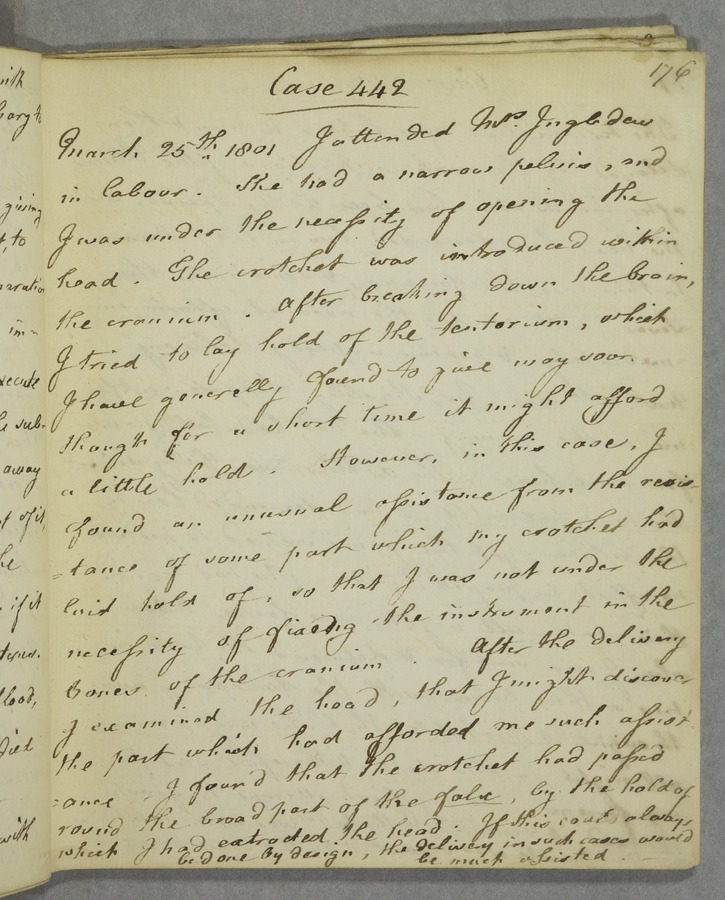 176
Case 442
March 25th 1801 I attended Mrs. Ingledew
in labour. She had a narrow pelvis, and
I was under the necessity of opening the
head. The crotchet was introduced within
the cranium. After breaking down the brain,
I tried to lay hold of the tentorium, which
I have generally found to give way soon
though for a short time it might afford
a little hold. However, in this case, I
found an unusual assistance from the resis-
-tance of some part which my crotchet had
laid hold of, so that I was not under the
necessity of fixing the instrument in the
bones of the cranium. After the delivery
I examined the head, that I might discover
the part which had afforded me such assist-
-ance. I found that the crotchet had passed
round the broad part of the falx, by the hold of
which I had extracted the head. If this could always
be done by design, the delivery in such cases would
be much assisted.
with
giving
t, to
execute
away
t of it,
he
if it
blood,
died
with